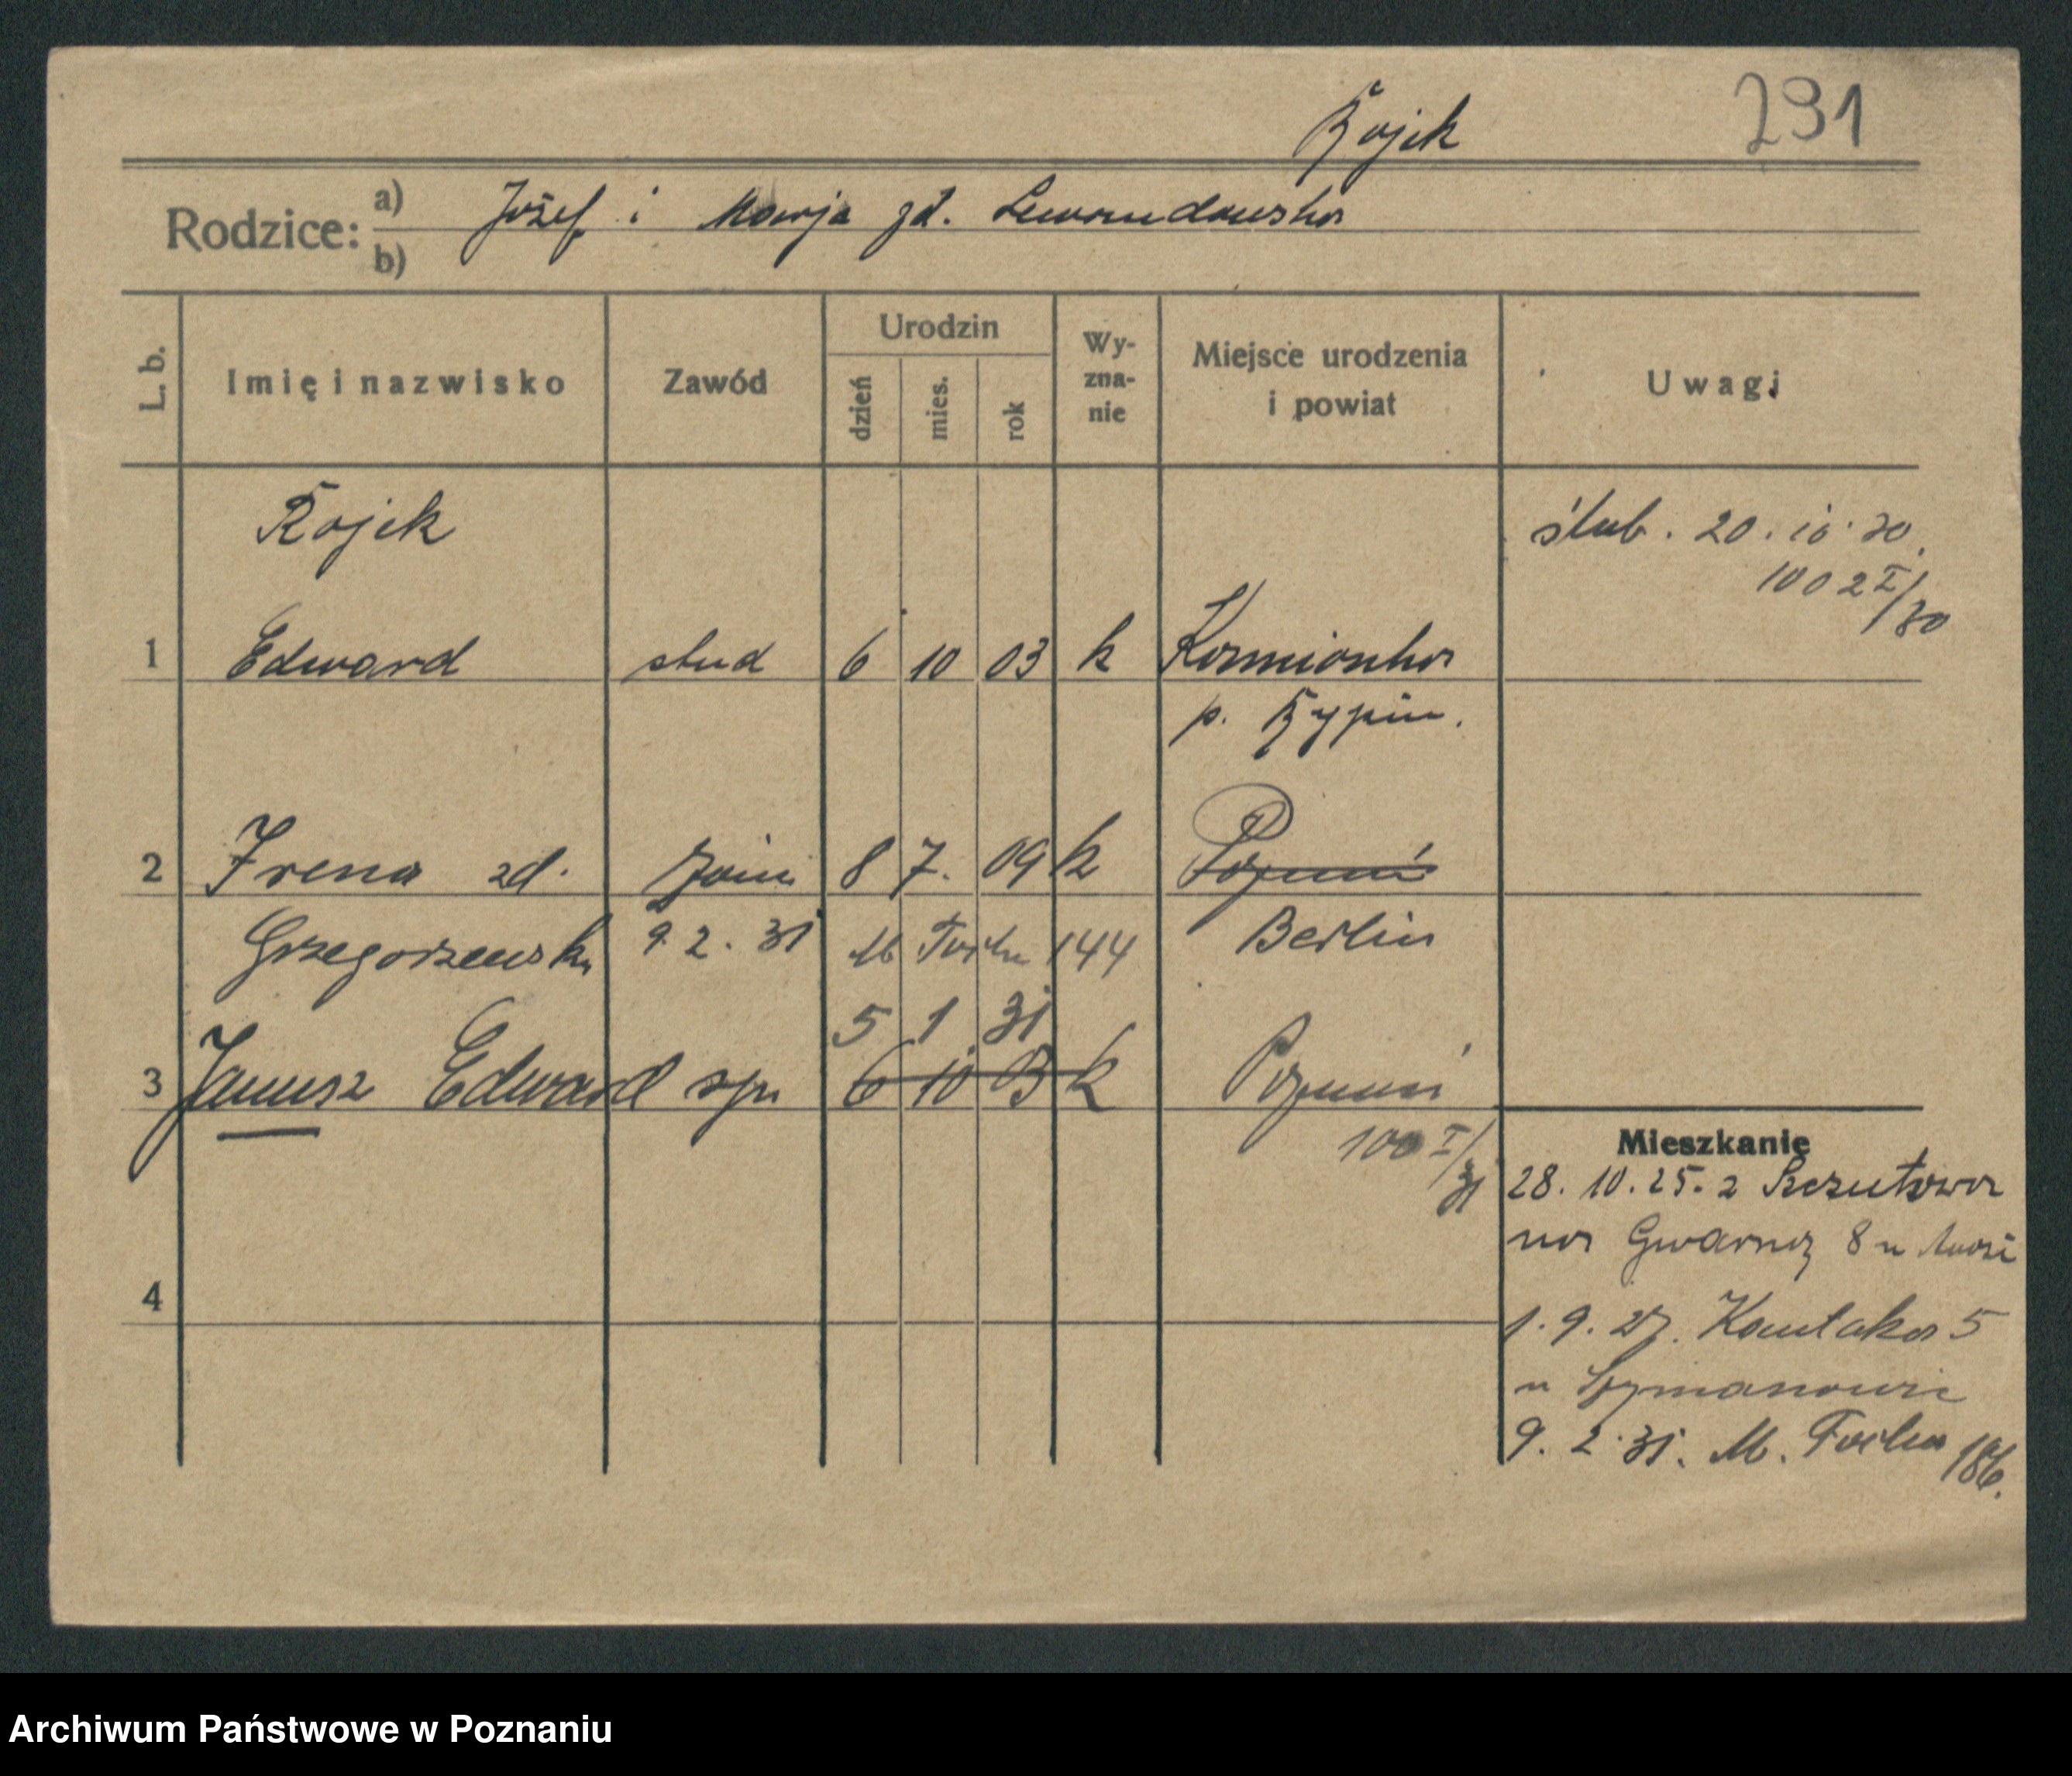 Rojek 291
Rodzice: a) Józef i Marja zd. Lewandowska
b)
L. b. Imię i nazwisko Zawód Urodzin dzień mies. rok Wy-zna-nie Miejsce urodzenia i powiat Uwagi
Rojek ślub. 20. 10. 30.
1002 I/30
1 Edward stud 6 10 03 k
p. Rypin.
2 Irena zd. żona 8 7. 09 k Poznań
Grzegorzewska 9. 2. 31 M Focha 144 Berlin
5 1 31
3 Janusz Edward syn 6 10 03 k Poznań
100 I/31
Mieszkanie
28. 10. 25. z Szczutowa
na Gwarną 8 u
4
1. 9. 27. Kantaka 5
u
9. 2. 31. M. Focha 186.
Archiwum Państwowe w Poznaniu